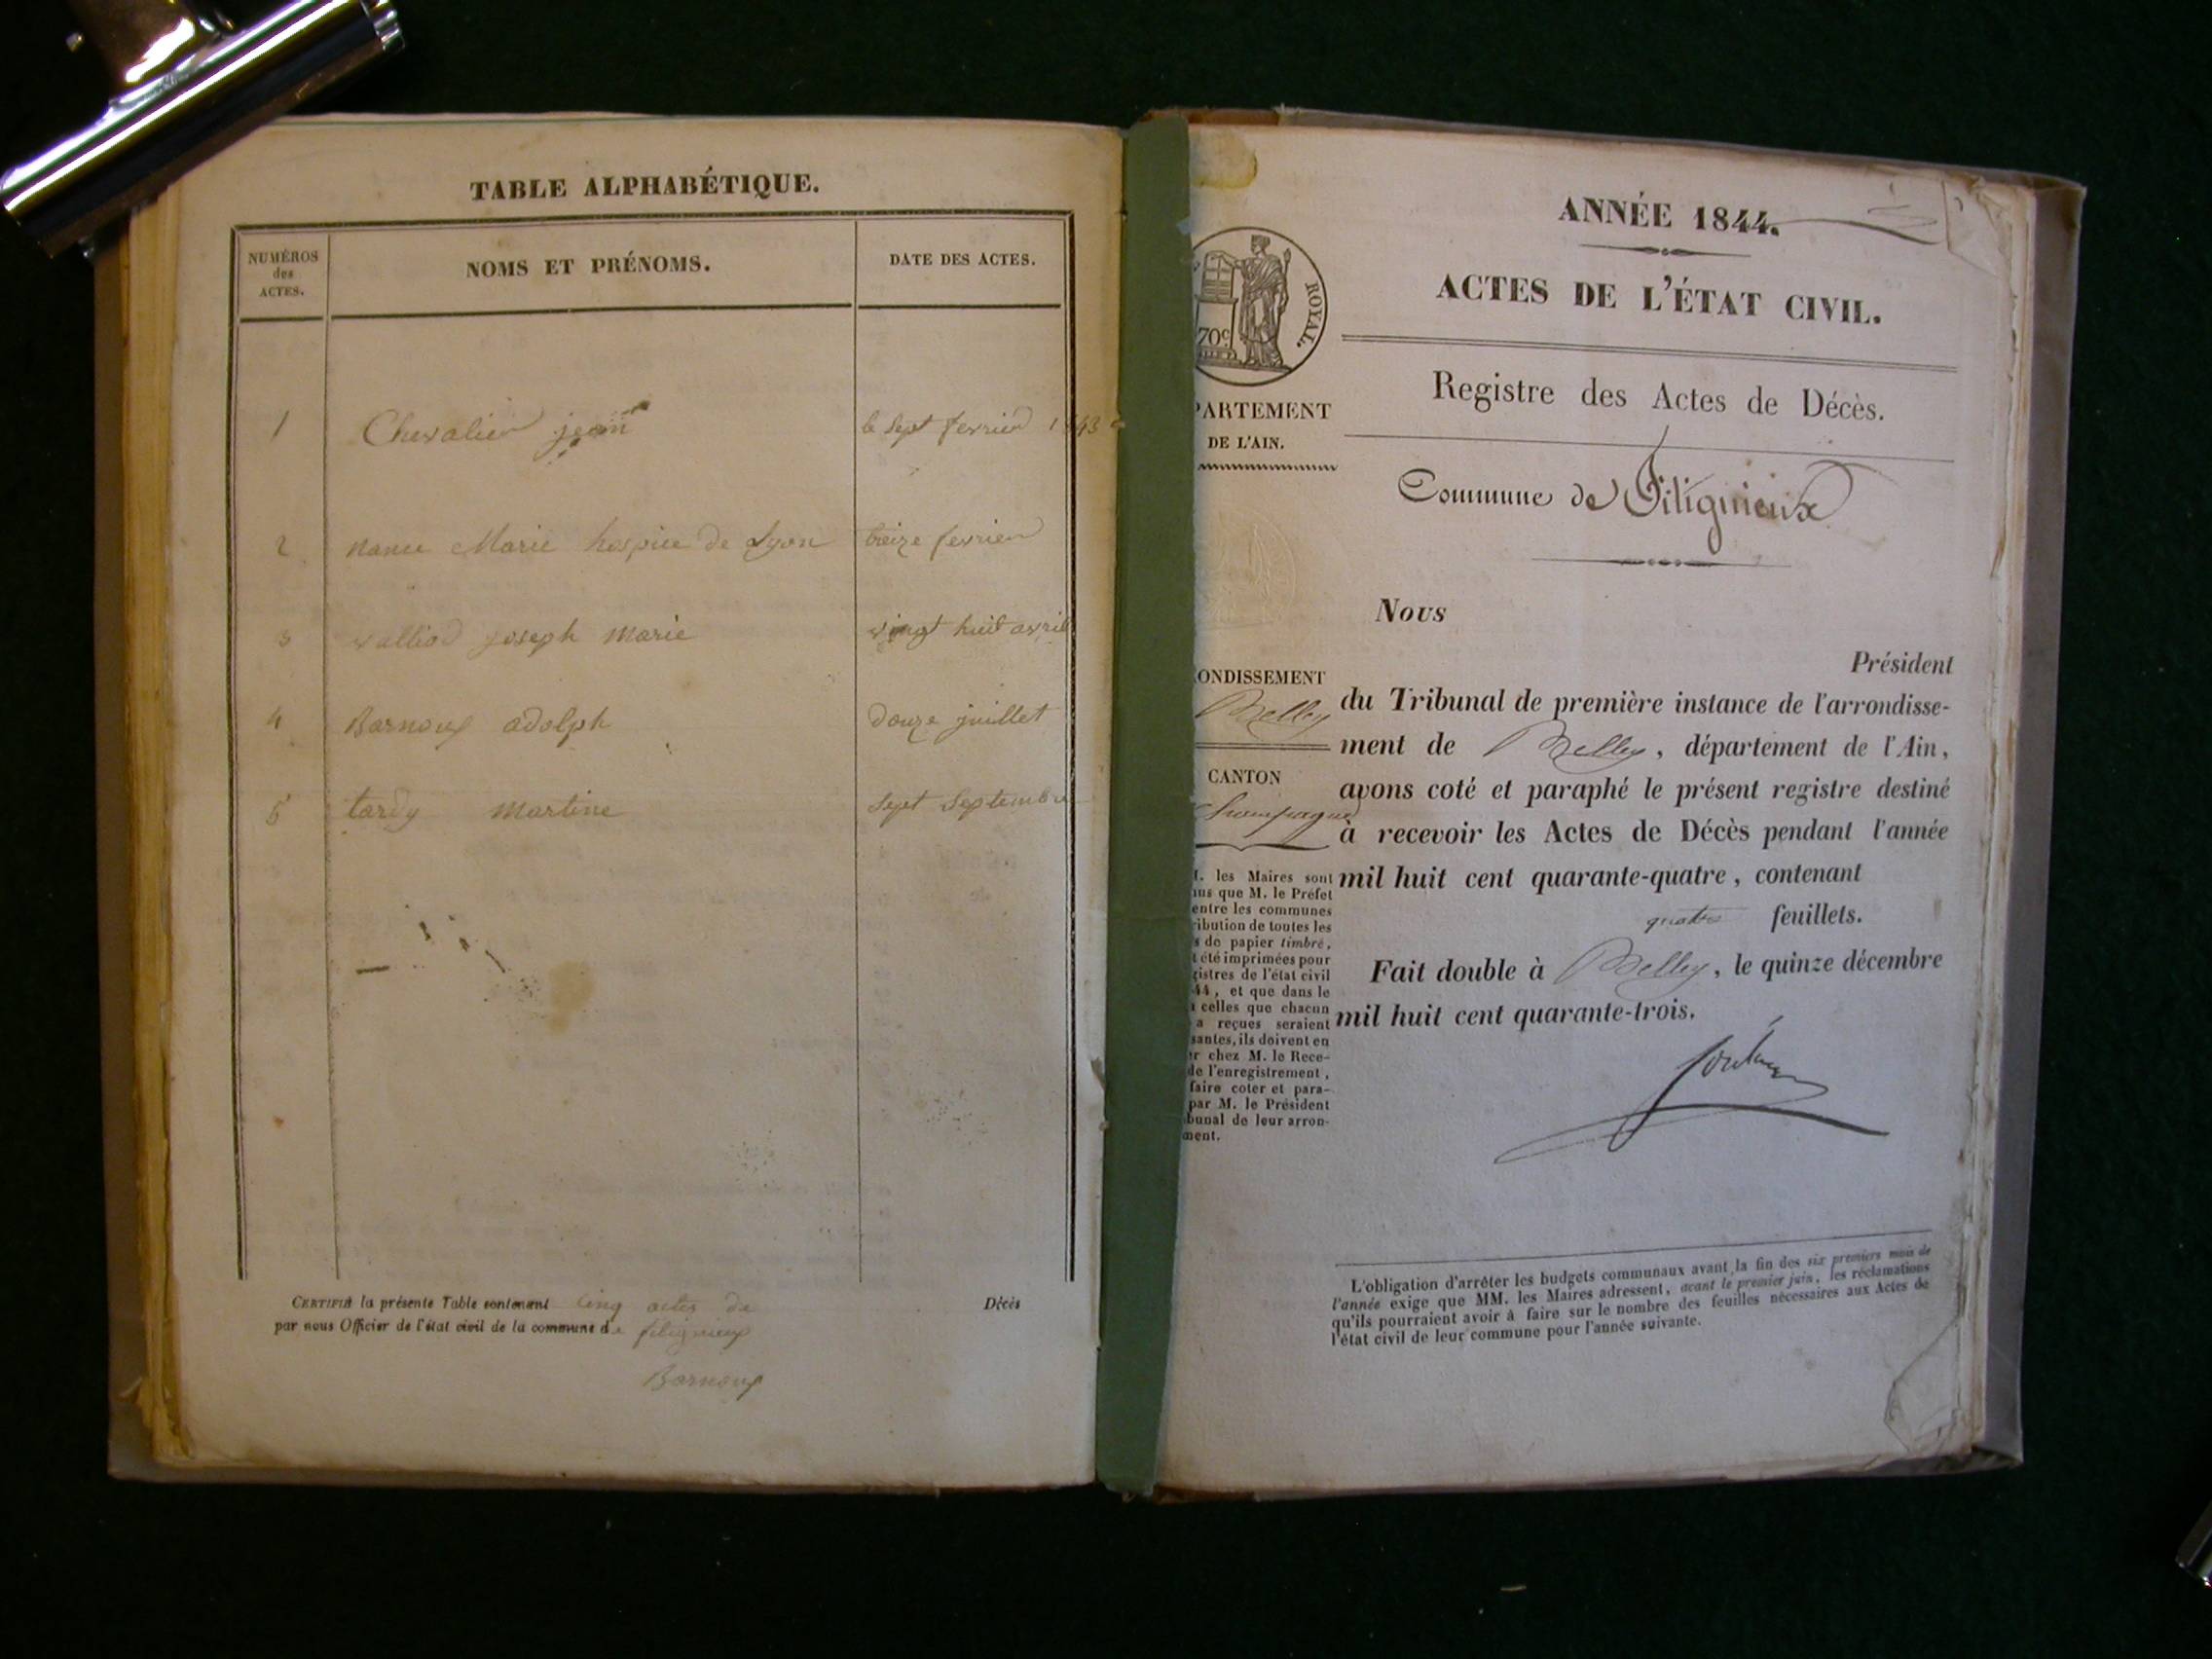 TABLE ALPHABÉTIQUE.
NUMÉROS
des
ACTES.
NOMS ET PRÉNOMS.
DATE DES ACTES.
1 Chevalier jean le sept fevrier 1843
2 Marie hospice de Lyon treize fevrier
3 valliod joseph marie vingt huit avril
4 Barnoux adolph douze juillet
5 tardy martine sept septembre
CERTIFIÉ la présente Table contenant cinq actes de Décès
par nous Officier de l'état civil de la commune de filignieux
Barnoux
ANNÉE 1844.
ACTES DE L'ÉTAT CIVIL.
ROYAL.
70c
PARTEMENT
DE L'AIN.
Registre des Actes de Décès.
Commune de Filignieux
Nous
Président
du Tribunal de première instance de l'arrondisse-
ment de Belley, département de l'Ain,
avons coté et paraphé le présent registre destiné
à recevoir les Actes de Décès pendant l'année
mil huit cent quarante-quatre, contenant
quatre feuillets.
Fait double à Belley, le quinze décembre
mil huit cent quarante-trois.
ONDISSEMENT
Belley
CANTON
Champagne
M. les Maires sont
nus que M. le Préfet
entre les communes
ribution de toutes les
s de papier timbré,
t été imprimées pour
gistres de l'état civil
44, et que dans le
celles que chacun
a reçues seraient
santes, ils doivent en
r chez M. le Rece-
de l'enregistrement,
faire coter et para-
par M. le Président
bunal de leur arron-
ment.
L'obligation d'arrêter les budgets communaux avant la fin des six premiers mois de
l'année exige que MM. les Maires adressent, avant le premier juin, les réclamations
qu'ils pourraient avoir à faire sur le nombre des feuilles nécessaires aux Actes de
l'état civil de leur commune pour l'année suivante.